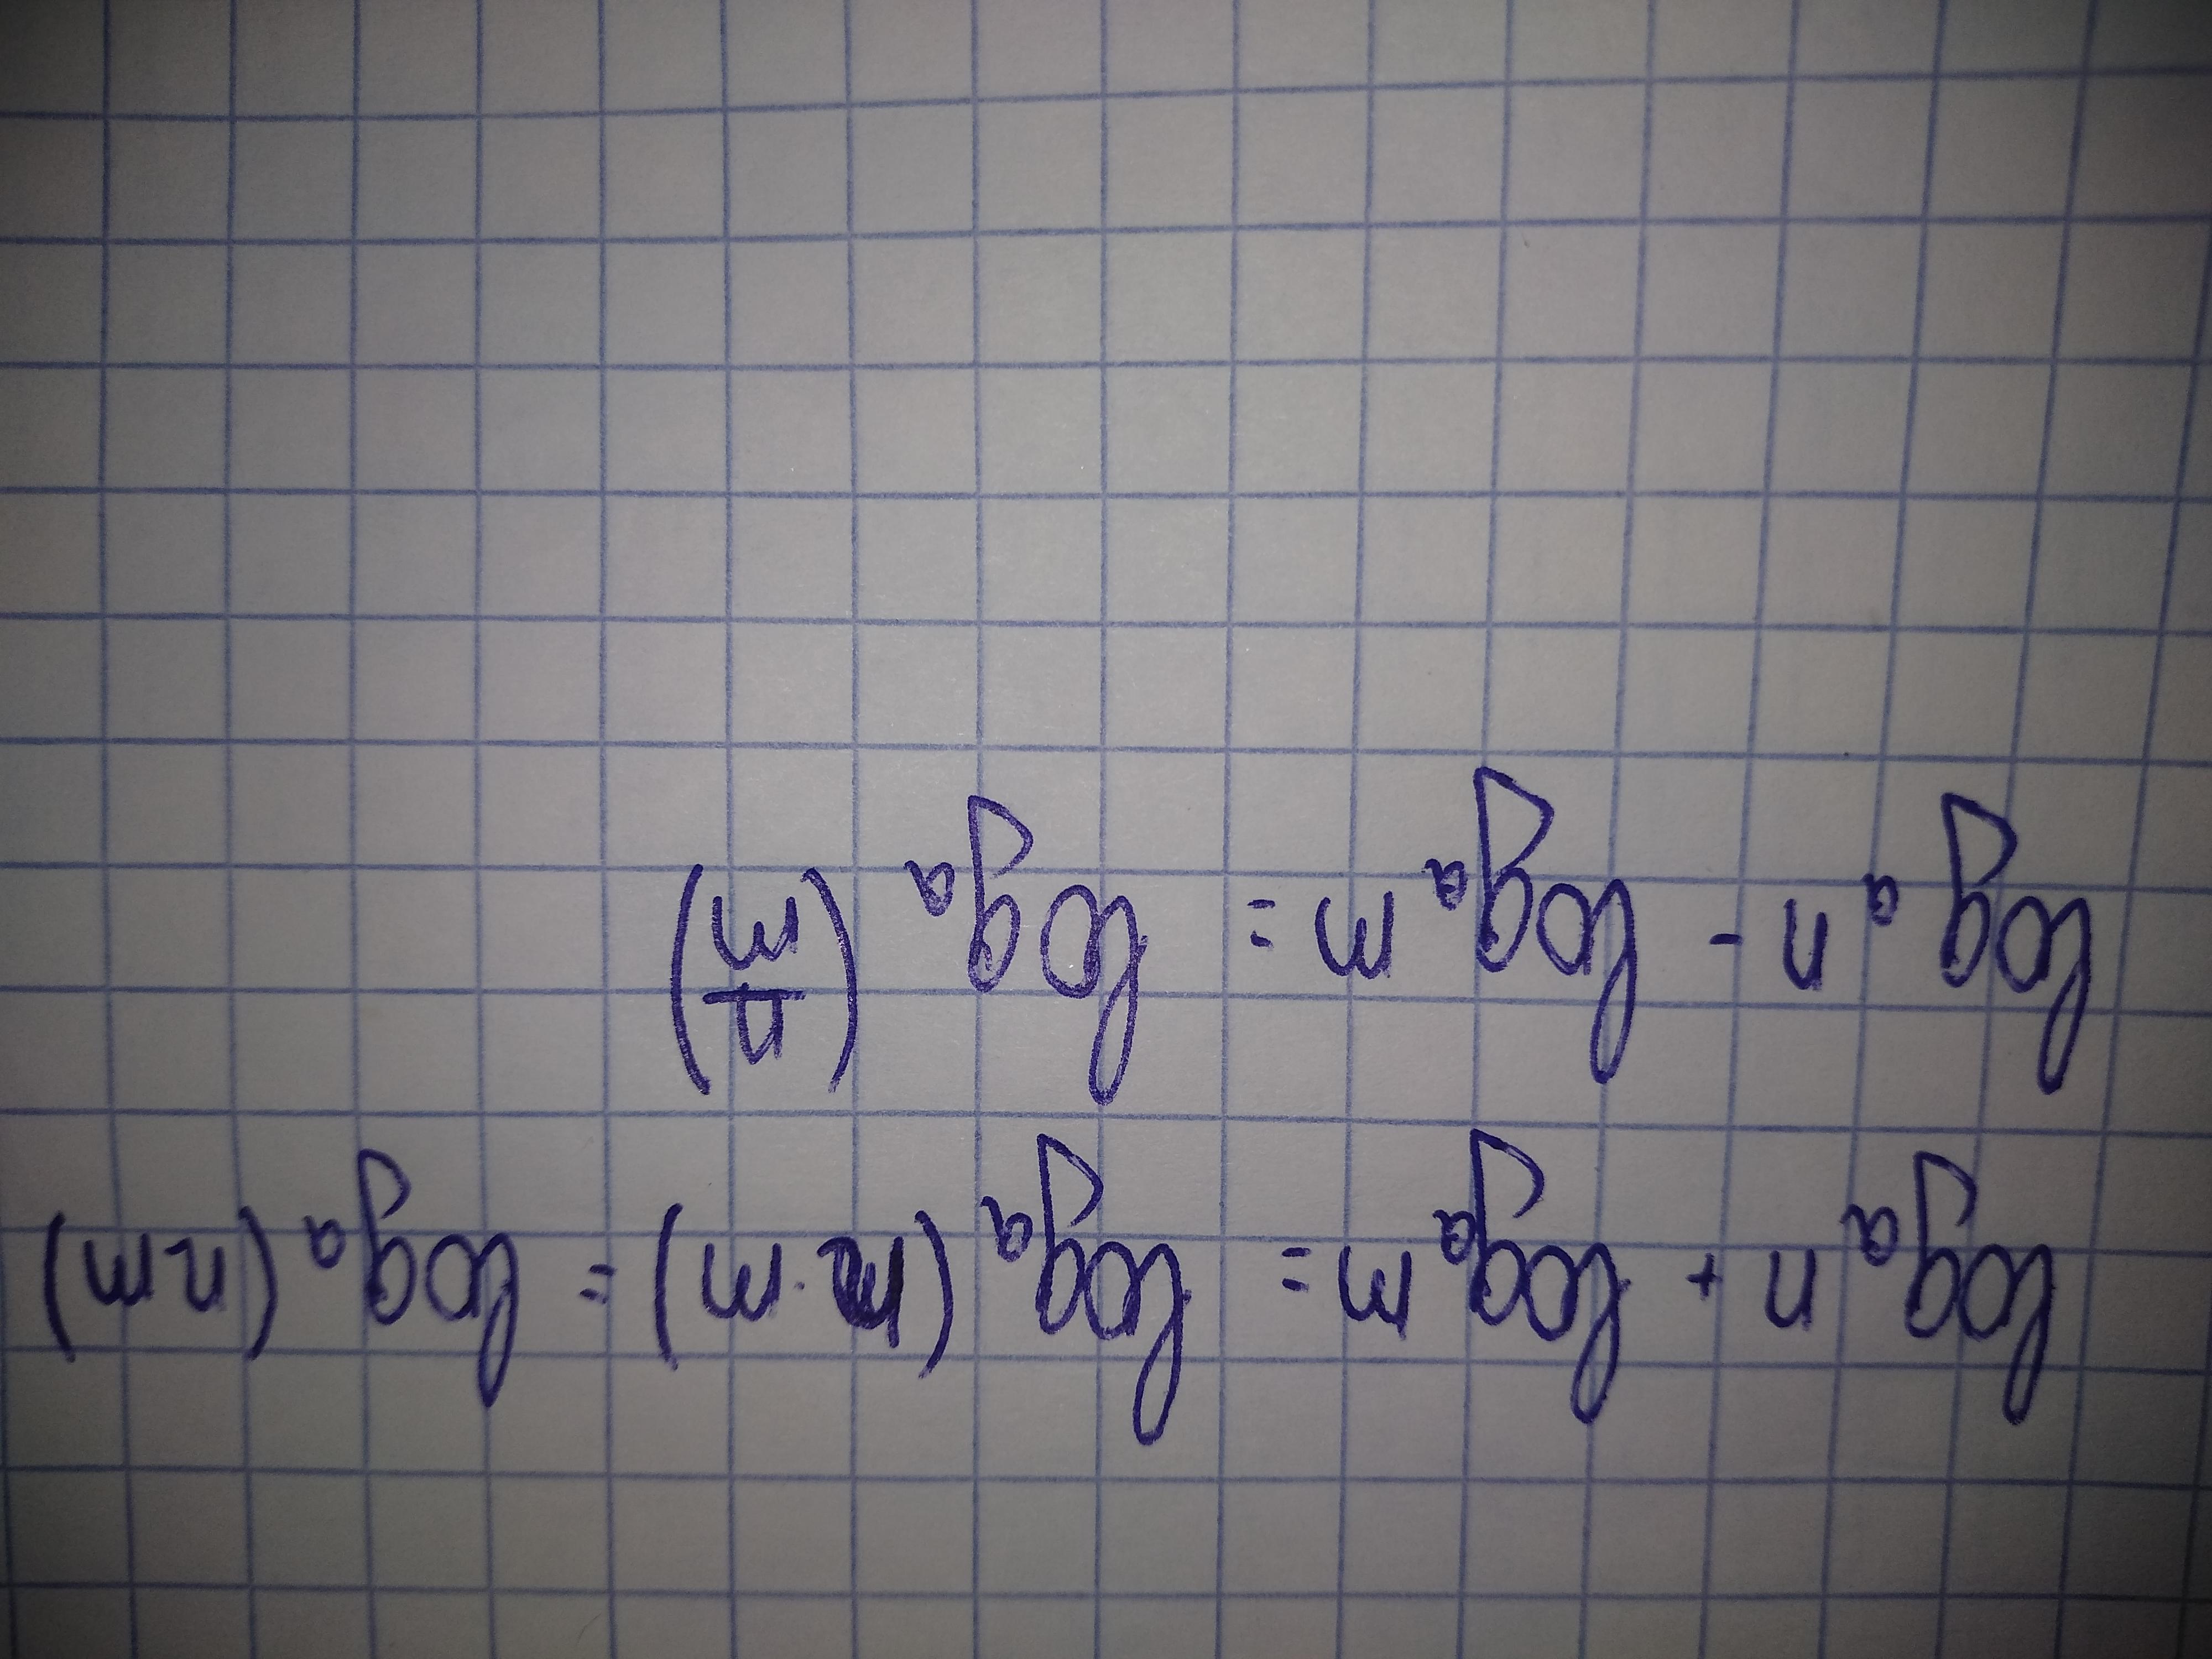 logₐ n + logₐ m = logₐ (n·m) = logₐ (nm)
logₐ n - logₐ m = logₐ (n/m)